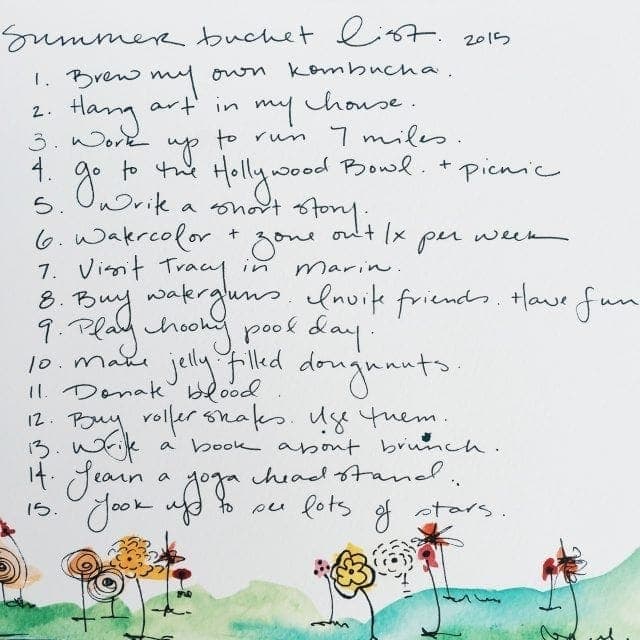 Summer bucket list. 2015
1. Brew my own kombucha.
2. Hang art in my house.
3. Work up to run 7 miles.
4. go to the Hollywood Bowl. + picnic
5. Write a short story.
6. Watercolor + zone out 1x per week
7. Visit Tracy in Marin.
8. Buy waterguns. Invite friends. Have fun
9. Play hooky pool day.
10. Make jelly filled doughnuts.
11. Donate blood
12. Buy roller skates. Use them.
13. Write a book about brunch.
14. Learn a yoga headstand.
15. Look up to see lots of stars.